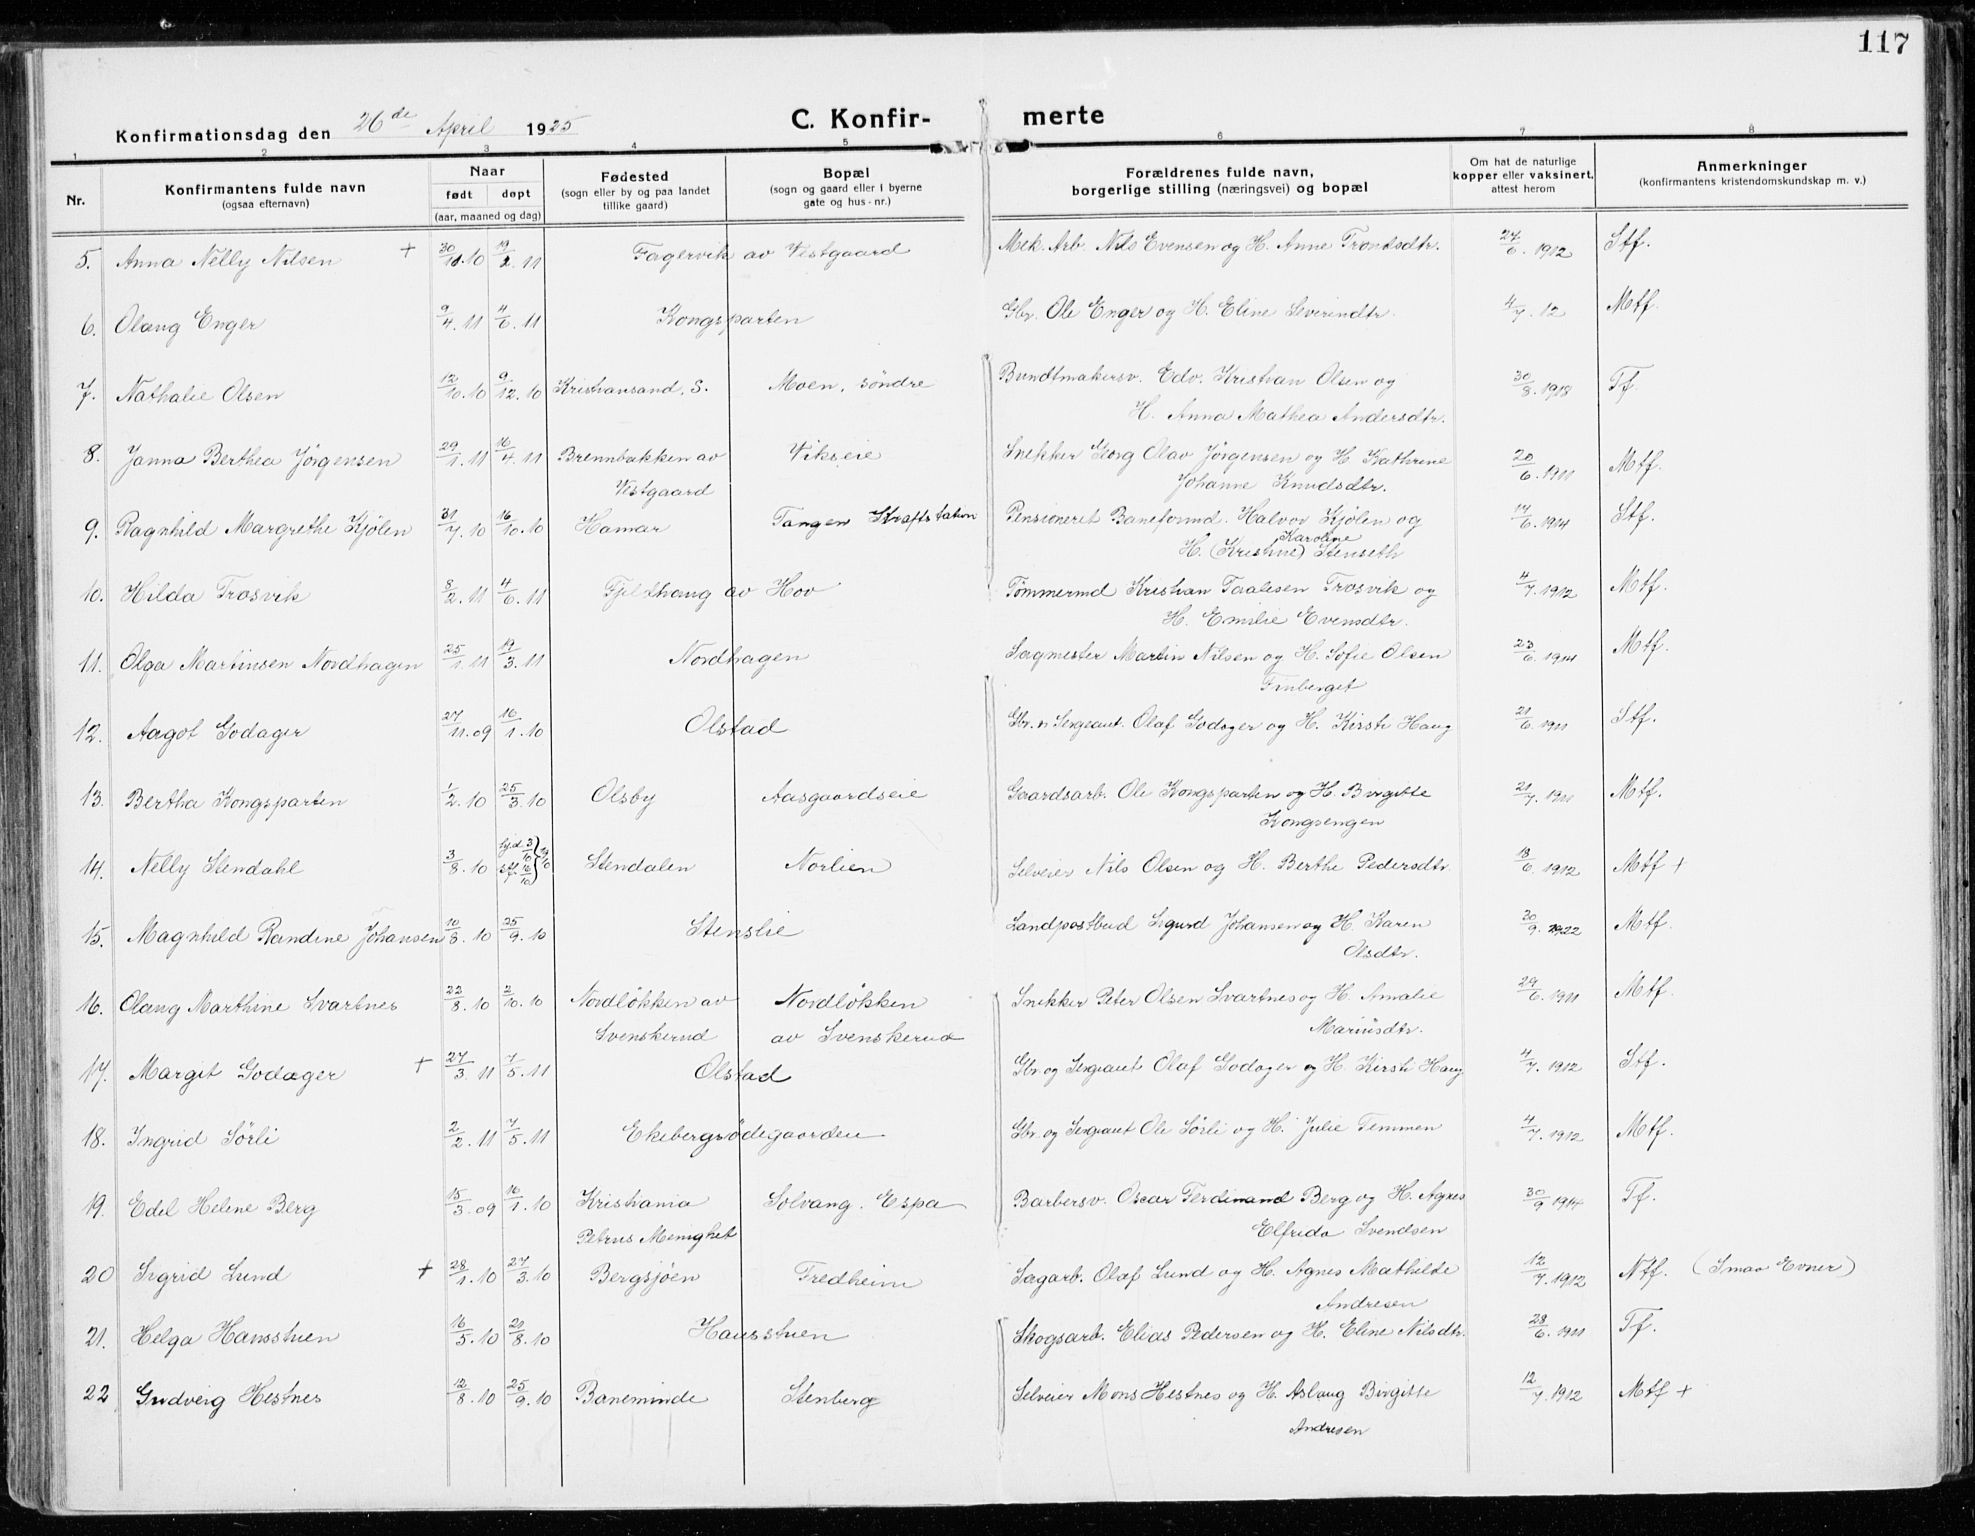 117
Konfirmationsdag den 26de April 1925
C. Konfirmerte
1 2 3 4 5 6 7 8
Nr.
Konfirmantens fulde navn
(ogsaa efternavn)
Naar
født døpt
(aar, maaned og dag)
Fødested
(sogn eller by og paa landet
tillike gaard)
Bopæl
(sogn og gaard eller i byerne
gate og hus-nr.)
Forældrenes fulde navn,
borgerlige stilling (næringsvei) og bopæl
Om hat de naturlige
kopper eller vaksinert,
attest herom
Anmerkninger
(konfirmantens kristendomskundskap m. v.)
5. Anna Nelly Nilsen + 30/11.10 19/2.11 Fagervik av Vestgaard Mek. Arb. Nils Evensen og H. Anne Trondsdtr. 24/6.1912 Stf.
6. Olaug Enger 9/4.11 4/6.11 Kongsparten Gbr. Ole Enger og H. Eline Severindtr. 4/7.12 Mtf.
7. Nathalie Olsen 12/10.10 9/12.10 Kristiansand, S. Moen, søndre Bundtmakersv. Edv. Kristian Olsen og 30/8.1918 Tf.
H. Anna Mathea Andersdtr.
8. Janna Berthea Jørgensen 29/1.11 16/4.11 Brennbakken av Vikseie Snekker Georg Olav Jørgensen og H. Kathrine 20/6.1911 Mtf.
Vestgaard Johanne Knudsdtr.
9. Ragnhild Margrethe Kjølen 31/7.10 16/10.10 Hamar Tangen Kraftstation Pensioneret Baneformd. Halvor Kjølen og 14/6.1914 Stf.
Karoline
H. (Kristine) Stenseth
10. Hilda Trosvik 8/2.11 4/6.11 Fjeldhaug av Hov Tømmermd Kristian Taalesen Trosvik og 4/7.1912 Mtf.
H. Emilie Evensdtr.
11. Olga Martinsen Nordhagen 25/1.11 19/3.11 Nordhagen Sagmester Martin Nilsen og H. Sofie Olsen 23/6.1914 Mtf.
Finberget
12. Aagot Godager 27/11.09 16/1.10 Olstad Gbr. n Sergeant. Olaf Godager og H. Kirsti Haug 21/6.1911 Stf.
13. Bertha Kongsparten 1/2.10 25/3.10 Olsby Aasgaardseie Gaardsarb. Ole Kongsparten og H. Birgitte 21/7.1911 Mtf.
Kongsengen
14. Nelly Stendahl 3/8.10 hj.d 3/10 16/10 } 19/10 Stendalen Norlien Selveier Nils Olsen og H. Berthe Pedersdtr 18/6.1912 Mtf +
15. Magnhild Randine Johansen 10/8.10 25/9.10 Stenslie Landpostbud Sigurd Johansen og H. Karen 30/9.1922 Mtf.
Olsdtr.
16. Olaug Marthine Svartnes 22/8.10 2/10.10 Nordløkken av Nordløkken Snekker Peter Olsen Svartnes og H. Amalie 29/6.1911 Mtf.
Svenskerud av Svenskerud Mariusdtr.
17. Margit Godager + 27/3.11 7/5.11 Olstad Gbr. og Sergeant Olaf Godager og H. Kirsti Haug 4/7.1912 Stf.
18. Ingrid Sørli 2/2.11 7/5.11 Ekebergsødegaarden Gbr. og Sergeant Ole Sørli og H. Julie Temmen 4/7.1912 Mtf.
19. Edel Helene Berg 15/3.09 16/1.10 Kristiania Solvang. Espa Barbersv. Oscar Ferdinand Berg og H. Agnes 30/9 1914 Tf.
Petrus Menighet Elfrida Svendsen
20 Sigrid Lund + 28/1.10 27/3.10 Bergsjøen Fredheim Sagarb. Olaf Lund og H. Agnes Mathilde 12/7.1912 Ntf. (Smaa Evner)
Andresen
21. Helga Hansstuen 16/5.10 21/8.10 Hansstuen Skogsarb. Elias Pedersen og H. Eline Nilsdtr. 28/6.1911 Tf.
22 Gudveig Hestnes 12/8.10 25/9.10 Baneminde Stenberg Selveier Mons Hestnes og H. Aslaug Birgitte 12/7.1912 Mtf +
Andresen